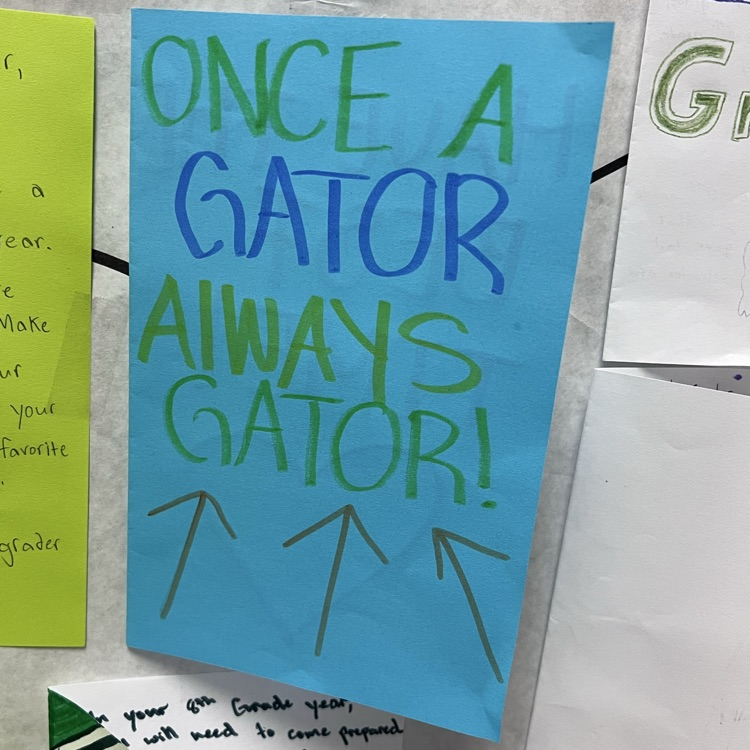 ONCE A
GATOR
AlWAYS
GATOR!
r,
a
ear.
e
Make
ur
your
favorite
grader
G
your 8th Grade year,
will need to come prepared